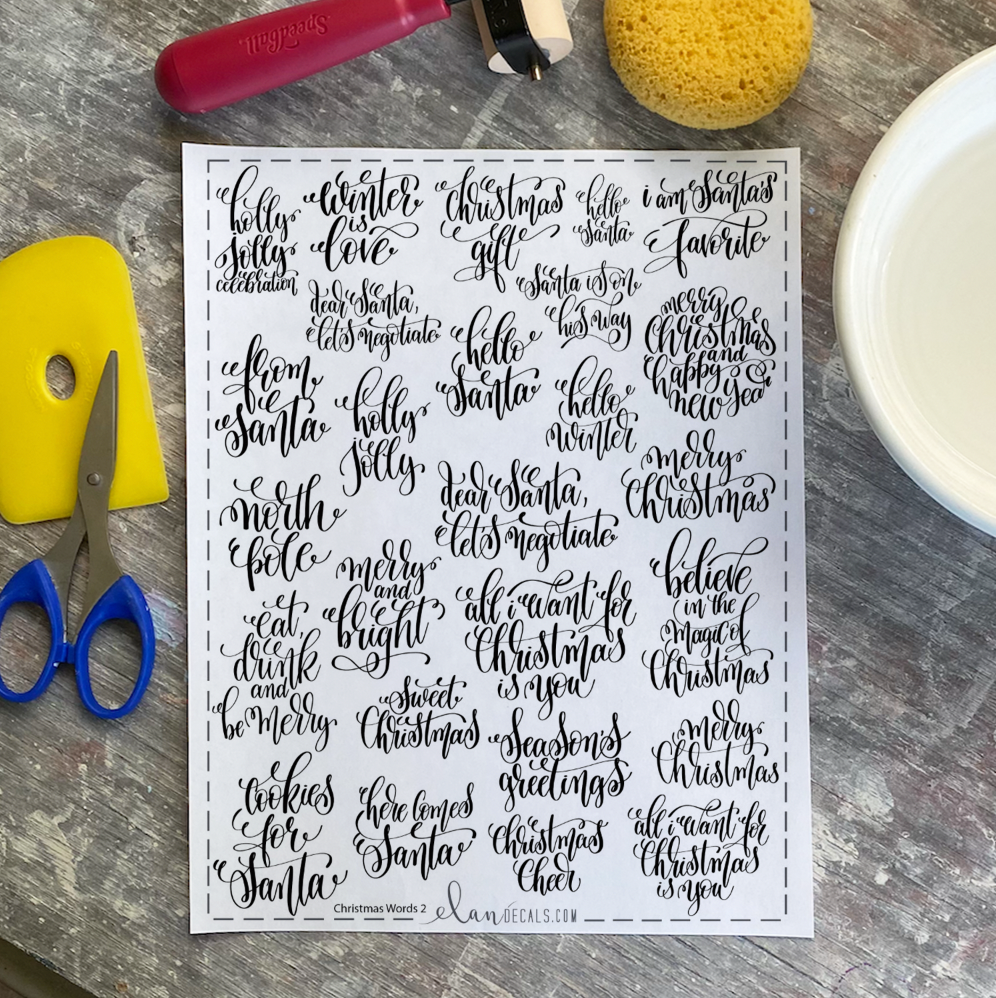 Speedball
holly
jolly
celebration
winter
is
love
christmas
gift
hello
santa
i am Santa's
favorite
dear Santa,
let's negotiate
Santa is on
his way
hello
Santa
merry
Christmas
and
happy
new year
from
Santa
holly
jolly
hello
winter
merry
Christmas
north
pole
dear Santa,
let's negotiate
merry
and
bright
all i want for
Christmas
is you
believe
in the
magic of
Christmas
eat,
drink
and
be merry
Sweet
Christmas
Season's
greetings
merry
Christmas
Cookies
for
Santa
here comes
Santa
Christmas
Cheer
all i want for
Christmas
is you
Christmas Words 2
elan DECALS.COM